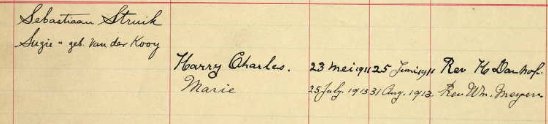 Sebastiaan Struik
Suzie " geb. Van der Kooy
Harry Charles. 23 mei 1911 25 Juni 1911 Rev H Danhof.
Marie 25 July. 1913 31 Aug. 1913. Rev. Wm. Meyers